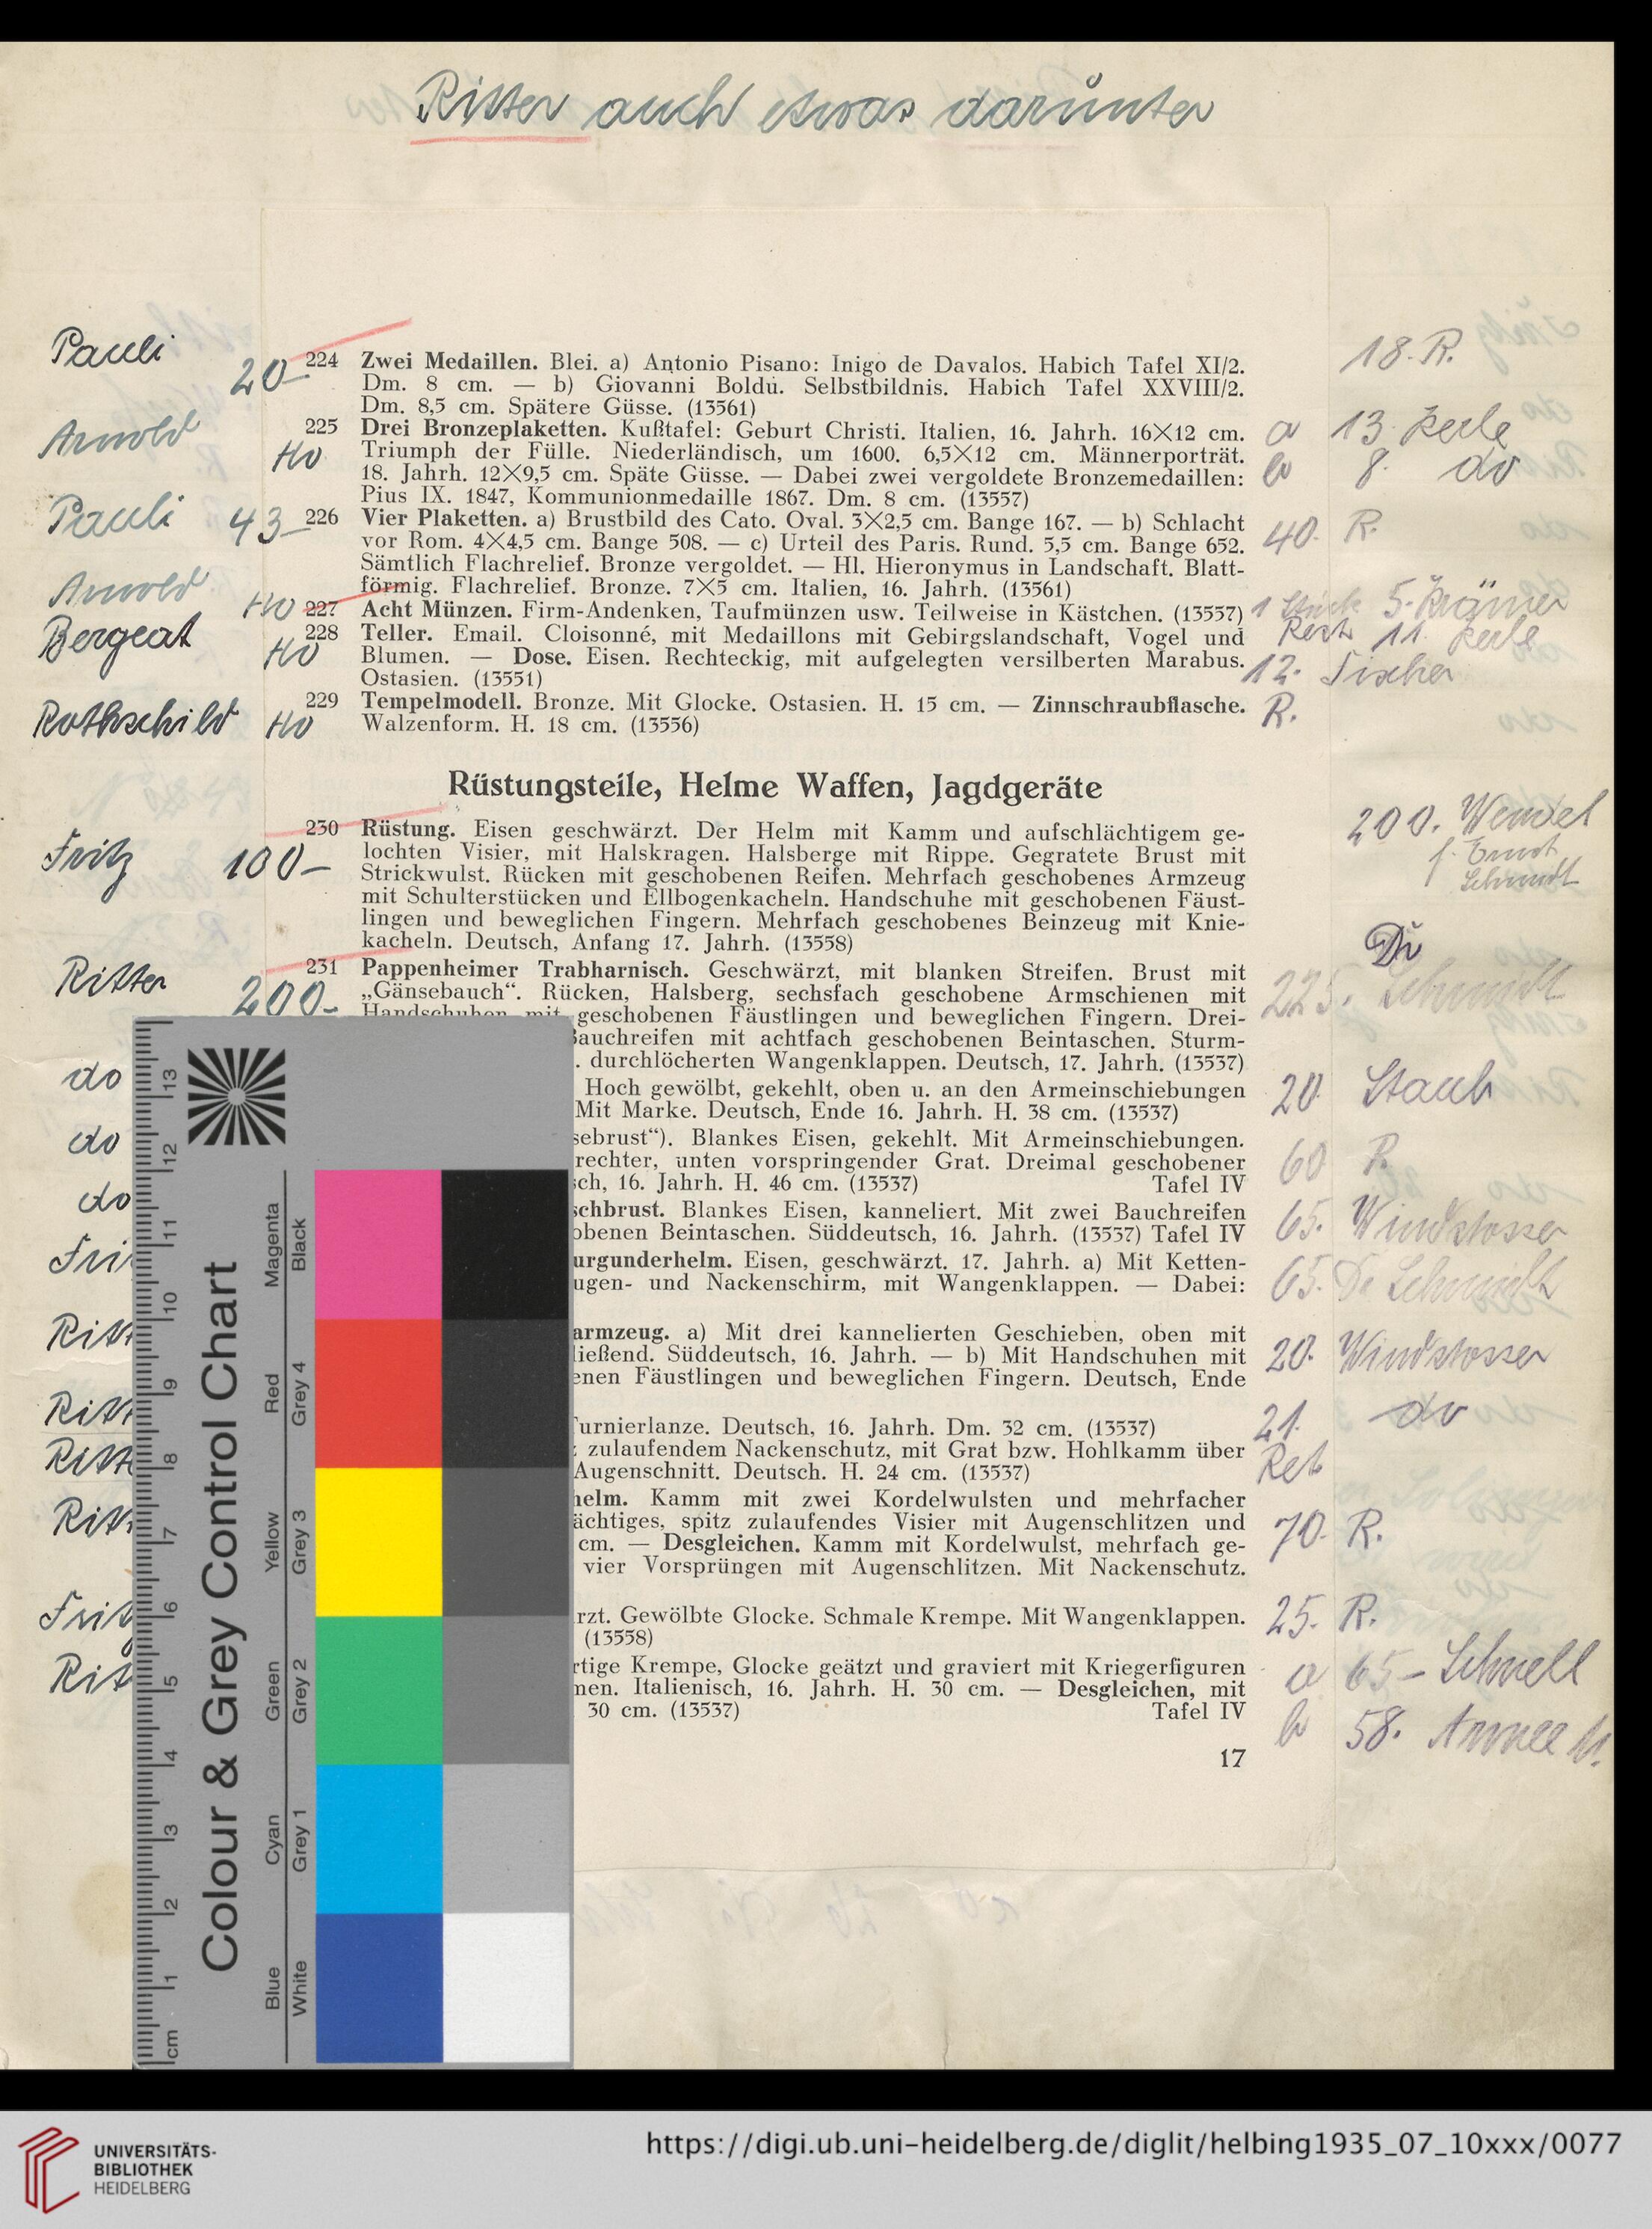 Ritter auch etwas darunter
Pauli 20- 18. R.
224 Zwei Medaillen. Blei. a) Antonio Pisano: Inigo de Davalos. Habich Tafel XI/2.
Dm. 8 cm. — b) Giovanni Boldù. Selbstbildnis. Habich Tafel XXVIII/2.
Dm. 8,5 cm. Spätere Güsse. (13561)
Arnold a 13.
225 Drei Bronzeplaketten. Kußtafel: Geburt Christi. Italien, 16. Jahrh. 16×12 cm.
Triumph der Fülle. Niederländisch, um 1600. 6,5×12 cm. Männerporträt. b 8. do
18. Jahrh. 12×9,5 cm. Späte Güsse. — Dabei zwei vergoldete Bronzemedaillen:
Pius IX. 1847, Kommunionmedaille 1867. Dm. 8 cm. (13557)
Pauli 43- 40. R.
226 Vier Plaketten. a) Brustbild des Cato. Oval. 3×2,5 cm. Bange 167. — b) Schlacht
vor Rom. 4×4,5 cm. Bange 508. — c) Urteil des Paris. Rund. 5,5 cm. Bange 652.
Sämtlich Flachrelief. Bronze vergoldet. — Hl. Hieronymus in Landschaft. Blatt-
förmig. Flachrelief. Bronze. 7×5 cm. Italien, 16. Jahrh. (13561)
Arnold 1 Stück 5.- Krämer
227 Acht Münzen. Firm-Andenken, Taufmünzen usw. Teilweise in Kästchen. (13557)
Bergeat Rest 11.
228 Teller. Email. Cloisonné, mit Medaillons mit Gebirgslandschaft, Vogel und
Blumen. — Dose. Eisen. Rechteckig, mit aufgelegten versilberten Marabus. 12. Fischer
Ostasien. (13551)
Rothschild R.
229 Tempelmodell. Bronze. Mit Glocke. Ostasien. H. 15 cm. — Zinnschraubflasche.
Walzenform. H. 18 cm. (13556)
Rüstungsteile, Helme Waffen, Jagdgeräte
Fritz 100- 200. Wendel
f. Ernst
Schmidt
230 Rüstung. Eisen geschwärzt. Der Helm mit Kamm und aufschlächtigem ge-
lochten Visier, mit Halskragen. Halsberge mit Rippe. Gegratete Brust mit
Strickwulst. Rücken mit geschobenen Reifen. Mehrfach geschobenes Armzeug
mit Schulterstücken und Ellbogenkacheln. Handschuhe mit geschobenen Fäust-
lingen und beweglichen Fingern. Mehrfach geschobenes Beinzeug mit Knie-
kacheln. Deutsch, Anfang 17. Jahrh. (13558)
Ritter 200- 225. Dr Schmidt
231 Pappenheimer Trabharnisch. Geschwärzt, mit blanken Streifen. Brust mit
„Gänsebauch“. Rücken, Halsberg, sechsfach geschobene Armschienen mit
Handschuhen mit geschobenen Fäustlingen und beweglichen Fingern. Drei-
Bauchreifen mit achtfach geschobenen Beintaschen. Sturm-
. durchlöcherten Wangenklappen. Deutsch, 17. Jahrh. (13537)
do 20. Staub
Hoch gewölbt, gekehlt, oben u. an den Armeinschiebungen
Mit Marke. Deutsch, Ende 16. Jahrh. H. 38 cm. (13537)
do 60 R.
sebrust“). Blankes Eisen, gekehlt. Mit Armeinschiebungen.
rechter, unten vorspringender Grat. Dreimal geschobener
sch, 16. Jahrh. H. 46 cm. (13537) Tafel IV
do 65. Windstosser
schbrust. Blankes Eisen, kanneliert. Mit zwei Bauchreifen
obenen Beintaschen. Süddeutsch, 16. Jahrh. (13537) Tafel IV
Fri 65. Dr Schmidt
urgunderhelm. Eisen, geschwärzt. 17. Jahrh. a) Mit Ketten-
ugen- und Nackenschirm, mit Wangenklappen. — Dabei:
Ritt 20. Windstosser
armzeug. a) Mit drei kannelierten Geschieben, oben mit
ließend. Süddeutsch, 16. Jahrh. — b) Mit Handschuhen mit
enen Fäustlingen und beweglichen Fingern. Deutsch, Ende
Ritt 21. do
Turnierlanze. Deutsch, 16. Jahrh. Dm. 32 cm. (13537)
Ritt Ret
zulaufendem Nackenschutz, mit Grat bzw. Hohlkamm über
Augenschnitt. Deutsch. H. 24 cm. (13537)
Ritt 70. R.
helm. Kamm mit zwei Kordelwulsten und mehrfacher
ächtiges, spitz zulaufendes Visier mit Augenschlitzen und
cm. — Desgleichen. Kamm mit Kordelwulst, mehrfach ge-
vier Vorsprüngen mit Augenschlitzen. Mit Nackenschutz.
Fritz 25. R.
rzt. Gewölbte Glocke. Schmale Krempe. Mit Wangenklappen.
(13558)
Rit a 65- Schnell
rtige Krempe, Glocke geätzt und graviert mit Kriegerfiguren
nen. Italienisch, 16. Jahrh. H. 30 cm. — Desgleichen, mit
30 cm. (13537) Tafel IV
b 58. Armee M.
17
Colour & Grey Control Chart
Magenta Black
Red Grey 4
Yellow Grey 3
Green Grey 2
Cyan Grey 1
Blue White
cm 1 2 3 4 5 6 7 8 9 10 11 12 13
UNIVERSITÄTS-
BIBLIOTHEK
HEIDELBERG
https://digi.ub.uni-heidelberg.de/diglit/helbing1935_07_10xxx/0077